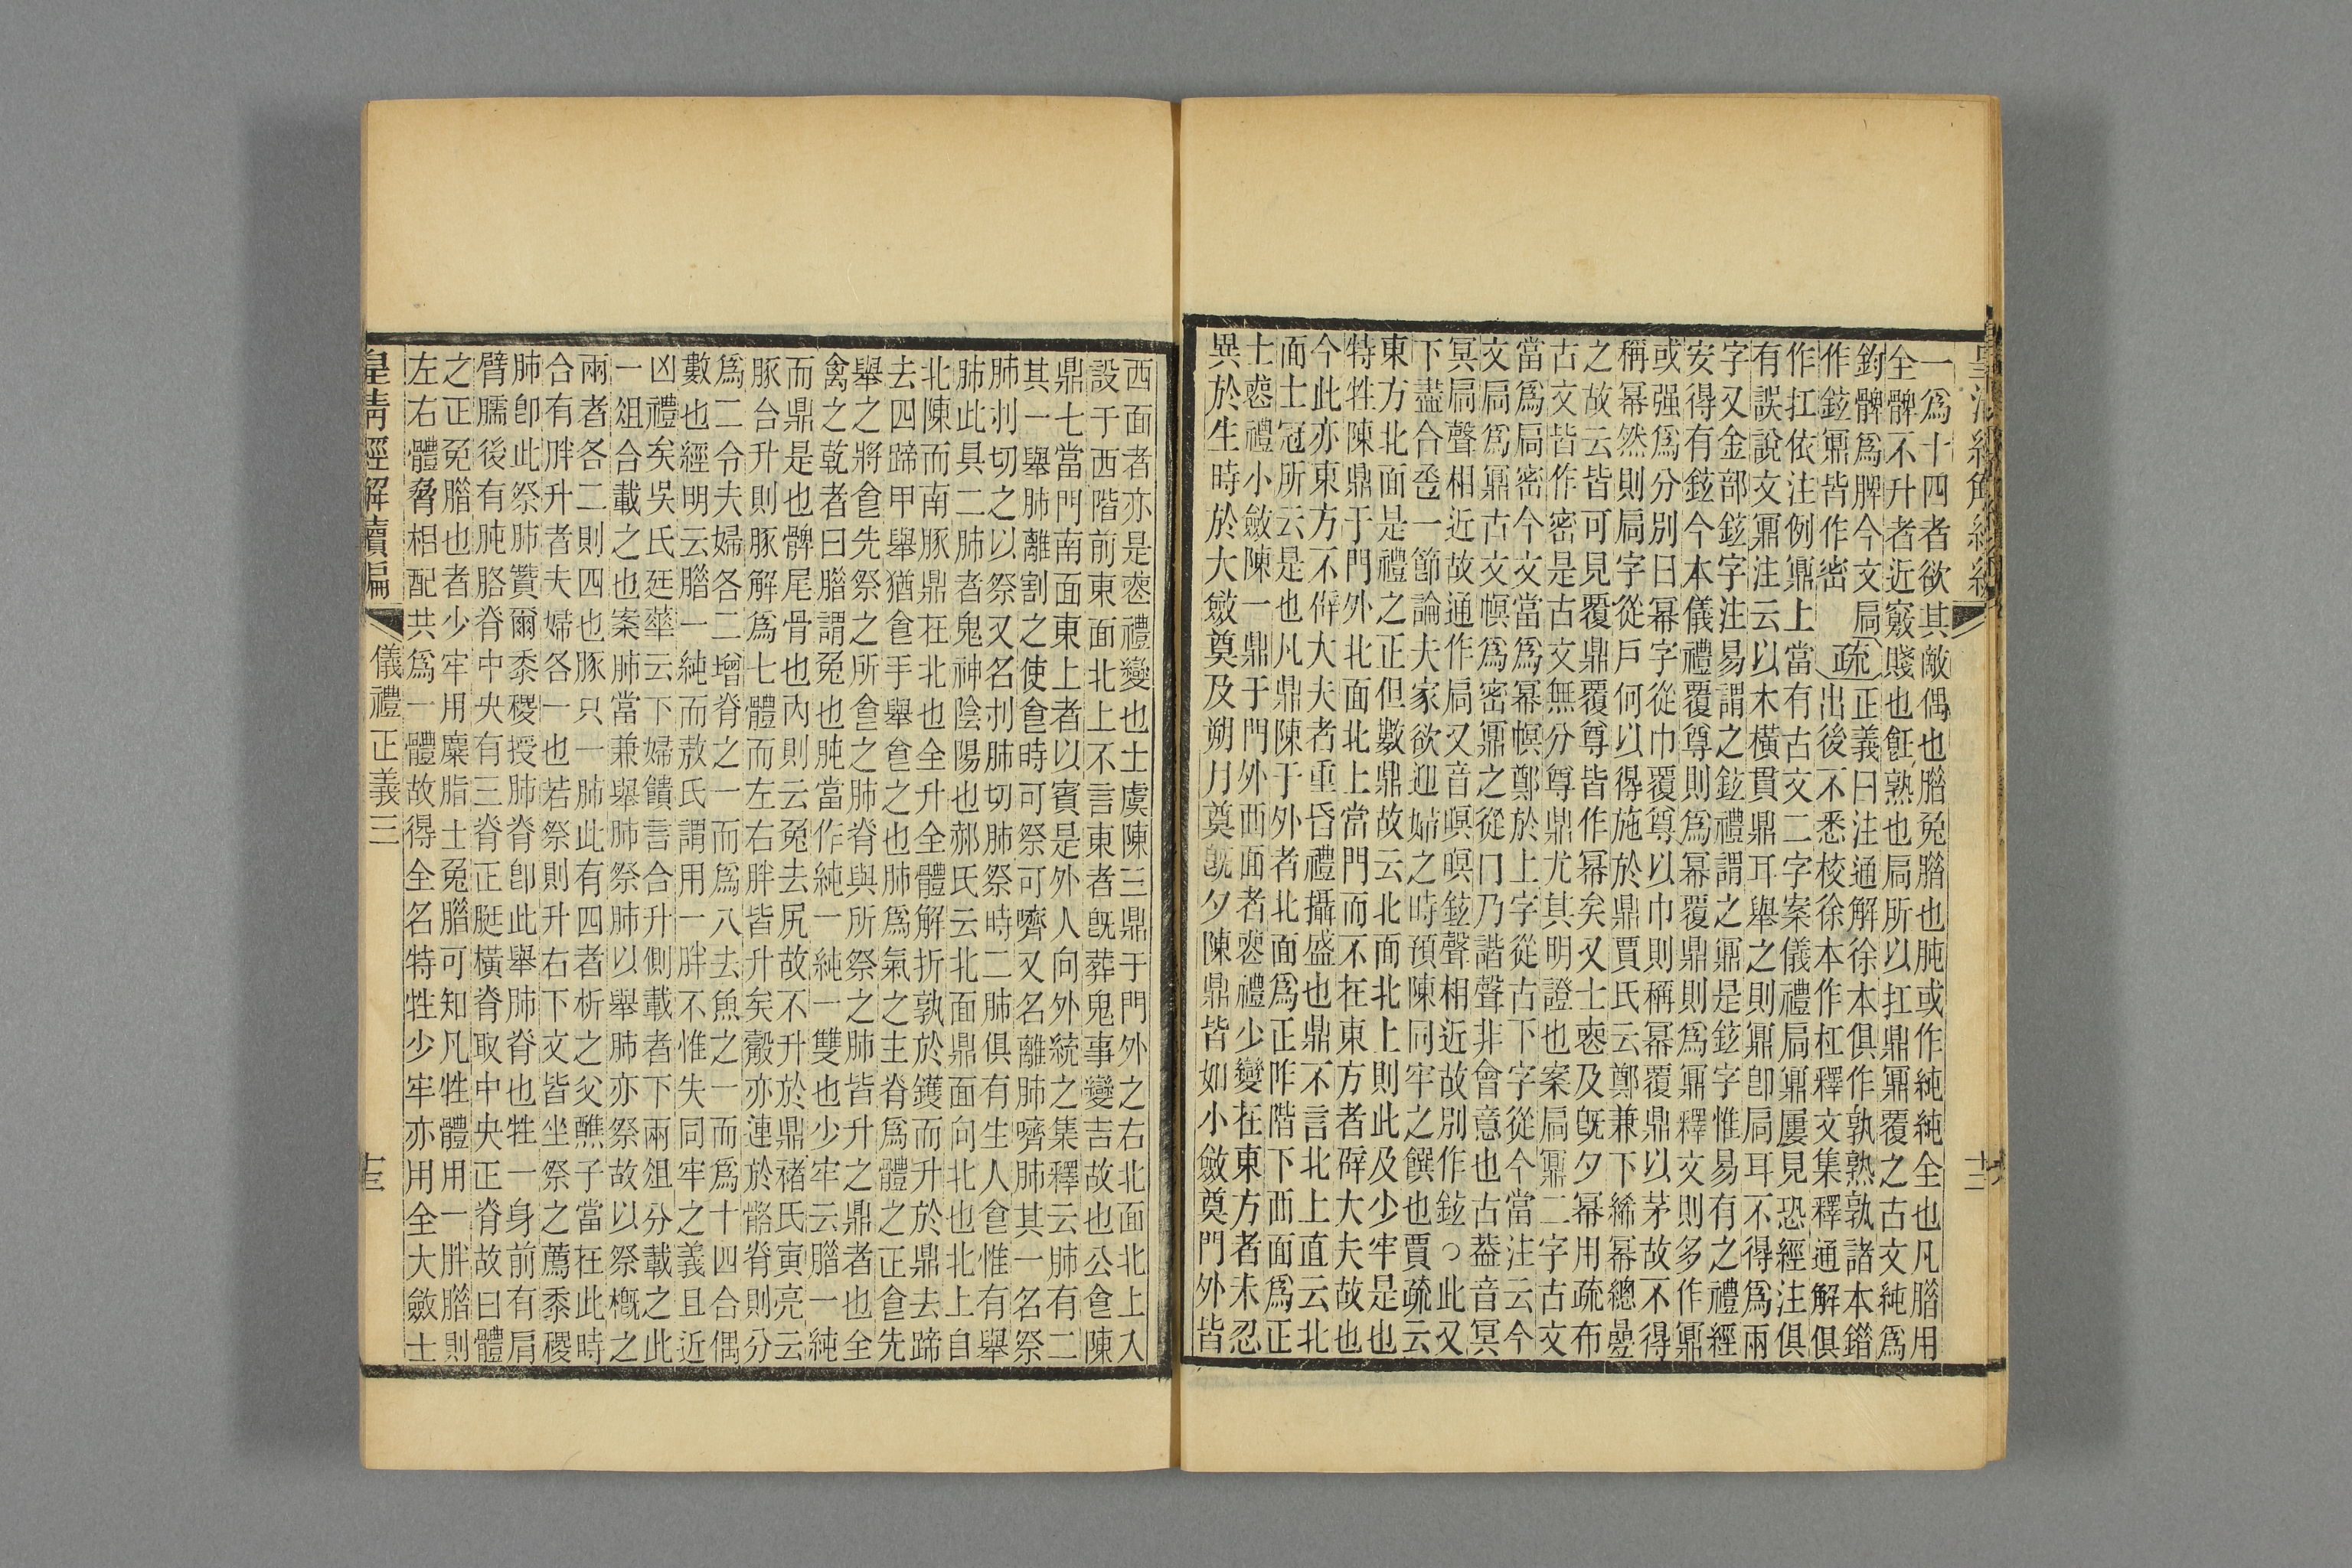 一爲十四者欲其敵偶也腊兔腊也肫或作純純全也凡腊用
全髀不升者近竅賤也飪熟也扃所以扛鼎鼏覆之古文純爲
鈞髀爲脾今文扃作鉉鼏皆作密
疏正義曰注通解徐本俱作孰熟孰諸本錯出後不悉校徐本作杠釋文集釋通解俱
作扛依注例鼎上當有古文二字案儀禮扃鼏屢見恐經注俱
有誤說文鼏注云以木橫貫鼎耳舉之則鼏卽扃耳不得爲兩
字又金部鉉字注易謂之鉉禮謂之鼏是鉉字惟易有之禮經
安得有鉉今本儀禮覆尊則爲冪覆鼎則爲鼏釋文則多作鼏
或强爲分別曰冪字從巾覆尊以巾則稱冪覆鼎以茅故不得
稱冪然則扃字從戶何以得施於鼎賈氏云鄭兼下綌冪總疊
之故云皆可見覆鼎覆尊皆作冪矣又士喪及旣夕冪用疏布
古文皆作密是古文無分尊鼎尤其明證也案扃鼏二字古文
當爲扃密今文當爲冪幎鄭於上字從古下字從今當注云今
文扃爲鼏古文幎爲密鼏之從冂乃諧聲非會意也古葢音冥
冥扃聲相近故通作扃又音暝暝鉉聲相近故別作鉉○此又
下盡合巹一節論夫家欲迎婦之時預陳同牢之饌也賈疏云
東方北面是禮之正但數鼎故云北面北上則此及少牢是也
特牲陳鼎于門外北面北上當門而不在東方者辟大夫故也
今此亦東方不辟大夫者重昏禮攝盛也鼎不言北上直云北
面士冠所云是也凡鼎陳于外者北面爲正阼階下西面爲正
士喪禮小斂陳一鼎于門外西面者喪禮少變在東方者未忍
異於生時於大斂奠及朔月奠旣夕陳鼎皆如小斂奠門外皆
西面者亦是喪禮變也士虞陳三鼎于門外之右北面北上入
設于西階前東面北上不言東者旣葬鬼事變吉故也公食陳
鼎七當門南面東上者以賓是外人向外統之集釋云肺有二
其一舉肺離割之使食時可祭可嚌又名離肺嚌肺其一名祭
肺刌切之以祭又名刌肺切肺祭時二肺俱有生人食惟有舉
肺此具二肺者鬼神陰陽也郝氏云北面鼎面向北也北上自
北陳而南豚鼎在北也全升全體解折孰於鑊而升於鼎去蹄
去四蹄甲舉猶食手舉食之也肺爲氣之主脊爲體之正食先
舉之將食先祭之所食之肺脊與所祭之肺皆升之鼎者也全
禽之乾者曰腊謂兔也肫當作純一純一雙也少牢云腊一純
而鼎是也髀尾骨也內則云兔去尻故不升於鼎褚氏寅亮云
豚合升則豚解爲七體而左右胖皆升矣觳亦連於骼脊則分
爲二令夫婦各二增脊之一而爲八去魚之一而爲十四合偶
數也經明云腊一純而敖氏謂用一胖不惟失同牢之義且近
凶禮矣吳氏廷華云下婦饋言合升側載者下兩俎分載之此
一俎合載之也案肺當兼舉肺祭肺以舉肺亦祭故以祭槪之
兩者各二則四也豚只一肺此有四者析之父醮子當在此時
合有胖升者夫婦各一也若祭則升右下文皆坐祭之薦黍稷
肺卽此祭肺贊爾黍稷授肺脊卽此舉肺脊也牲一身前有肩
臂臑後有肫胳脊中央有三脊正脡橫脊取中央正脊故曰體
之正兔腊也者少牢用麋腊士兔腊可知凡牲體用一胖腊則
左右體脅相配共爲一體故得全名特牲少牢亦用全大斂士
皇清經解續編
儀禮正義三
十三